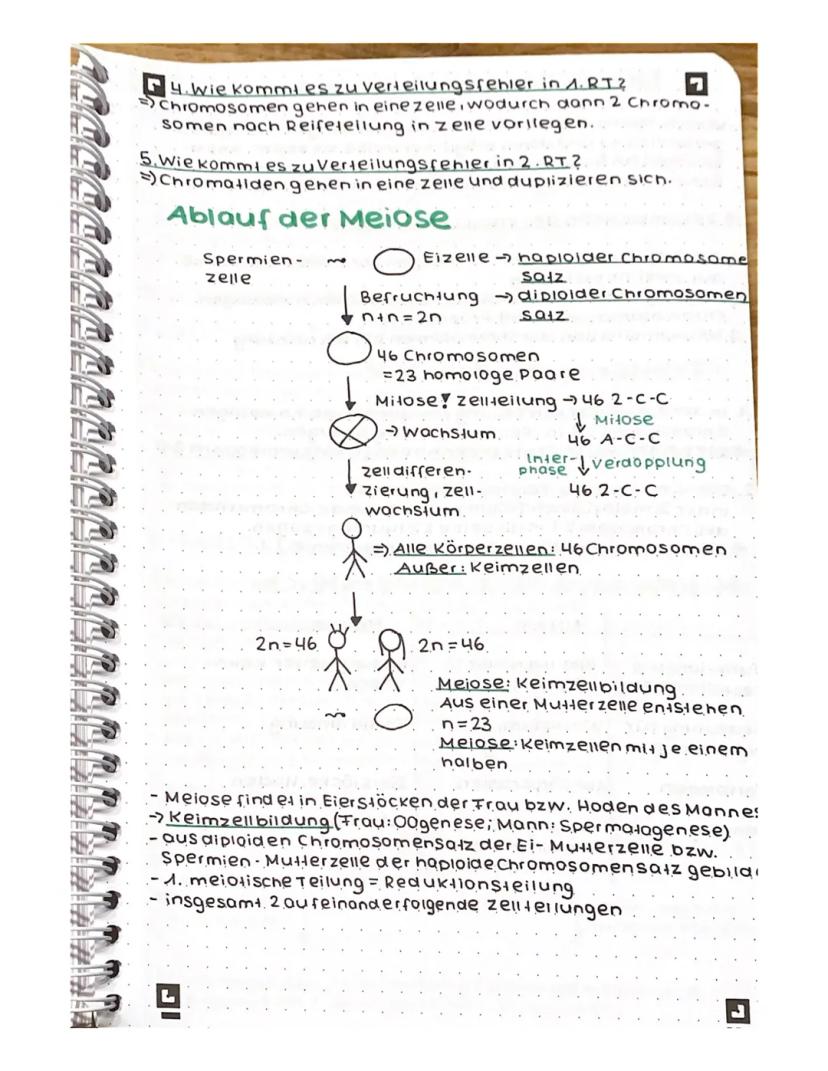 4. Wie kommt es zu Verteilungsfehler in 1. RT?
⇒ Chromosomen gehen in eine zelle, wodurch dann 2 Chromo-
somen nach Reifeteilung in zelle vorliegen.
5. Wie kommt es zu Verteilungsfehler in 2. RT?
⇒ Chromatiden gehen in eine zelle und duplizieren sich.
Ablauf der Meiose
Spermien- Eizelle → haploider Chromosome
zelle satz
Befruchtung → diploider Chromosomen
n+n=2n satz
46 Chromosomen
=23 homologe Paare
Mitose! Zellteilung → 46 2-C-C
↓ Mitose
→ Wachstum 46 A-C-C
Inter- ↓ Verdopplung
phase
zelldifferen- 46 2-C-C
zierung, zell-
wachstum
⇒ Alle Körperzellen: 46 Chromosomen
Außer: Keimzellen
2n=46 2n=46
Meiose: Keimzellbildung
Aus einer Mutterzelle entstehen
n=23
Meiose: Keimzellen mit je einem
halben
- Meiose findet in Eierstöcken der Frau bzw. Hoden des Mannes
→ Keimzellbildung (Frau: OOgenese; Mann: Spermatogenese)
- aus diploiden Chromosomensatz der Ei- Mutterzelle bzw.
Spermien-Mutterzelle der haploide Chromosomensatz gebild
- 1. meiotische Teilung = Reduktionsteilung
- insgesamt 2 aufeinanderfolgende zellteilungen